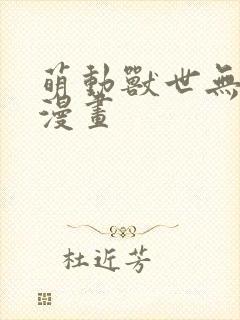 萌動獸世無
漫畫
杜近芳